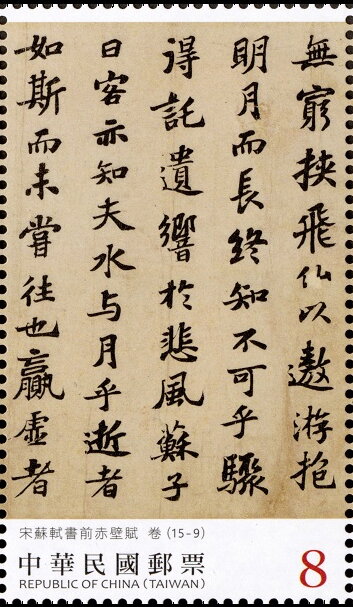 無窮挾飛仙以遨游抱
明月而長終知不可乎驟
得託遺響於悲風蘇子
曰客亦知夫水与月乎逝者
如斯而未嘗往也贏虛者
宋蘇軾書前赤壁賦 卷 (15-9)
中華民國郵票
REPUBLIC OF CHINA (TAIWAN)
8